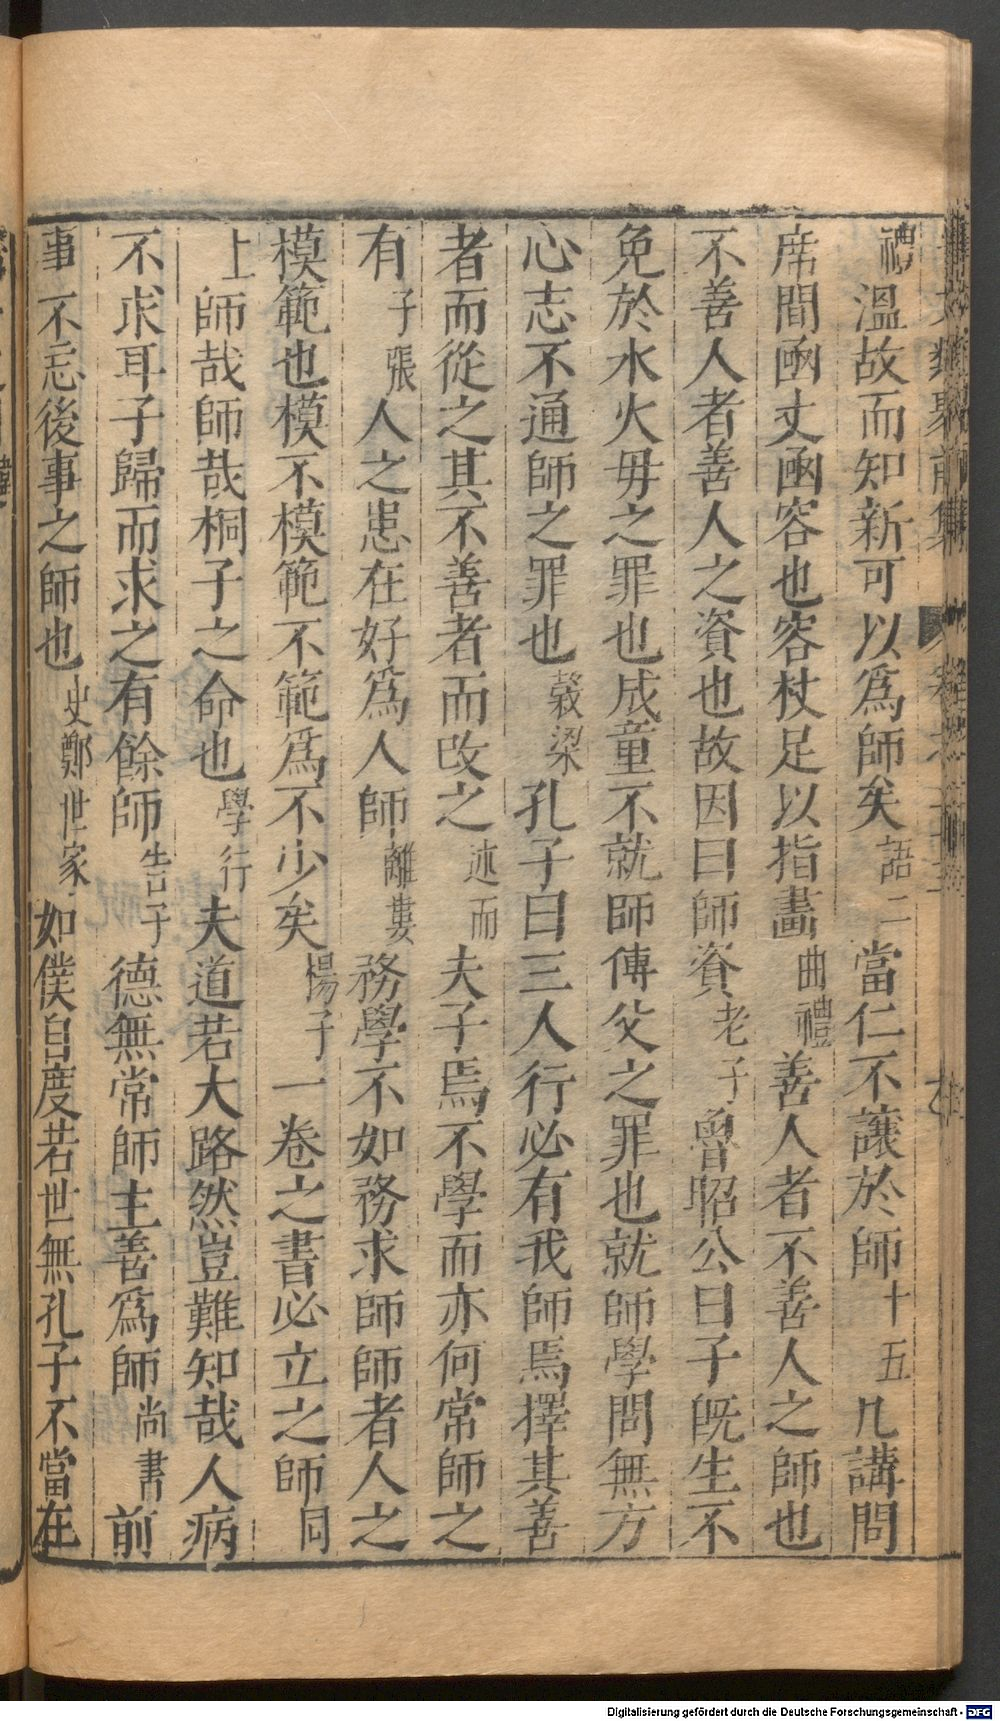 禮溫故而知新可以爲師矣語二當仁不讓於師十五凡講問
席間凾丈凾容也容杖足以指畫曲禮善人者不善人之師也
不善人者善人之資也故因曰師資老子魯昭公曰子旣生不
免於水火毋之罪也成童不就師傅父之罪也就師學問無方
心志不通師之罪也穀梁孔子曰三人行必有我師焉擇其善
者而從之其不善者而改之述而夫子焉不學而亦何常師之
有子張人之患在好爲人師離婁務學不如務求師師者人之
模範也模不模範不範爲不少矣楊子一卷之書必立之師同
上師哉師哉桐子之命也學行夫道若大路然豈難知哉人病
不求耳子歸而求之有餘師告子德無常師主善爲師尚書前
事不忘後事之師也史鄭世家如僕自度若世無孔子不當在
Digitalisierung gefördert durch die Deutsche Forschungsgemeinschaft - DFG